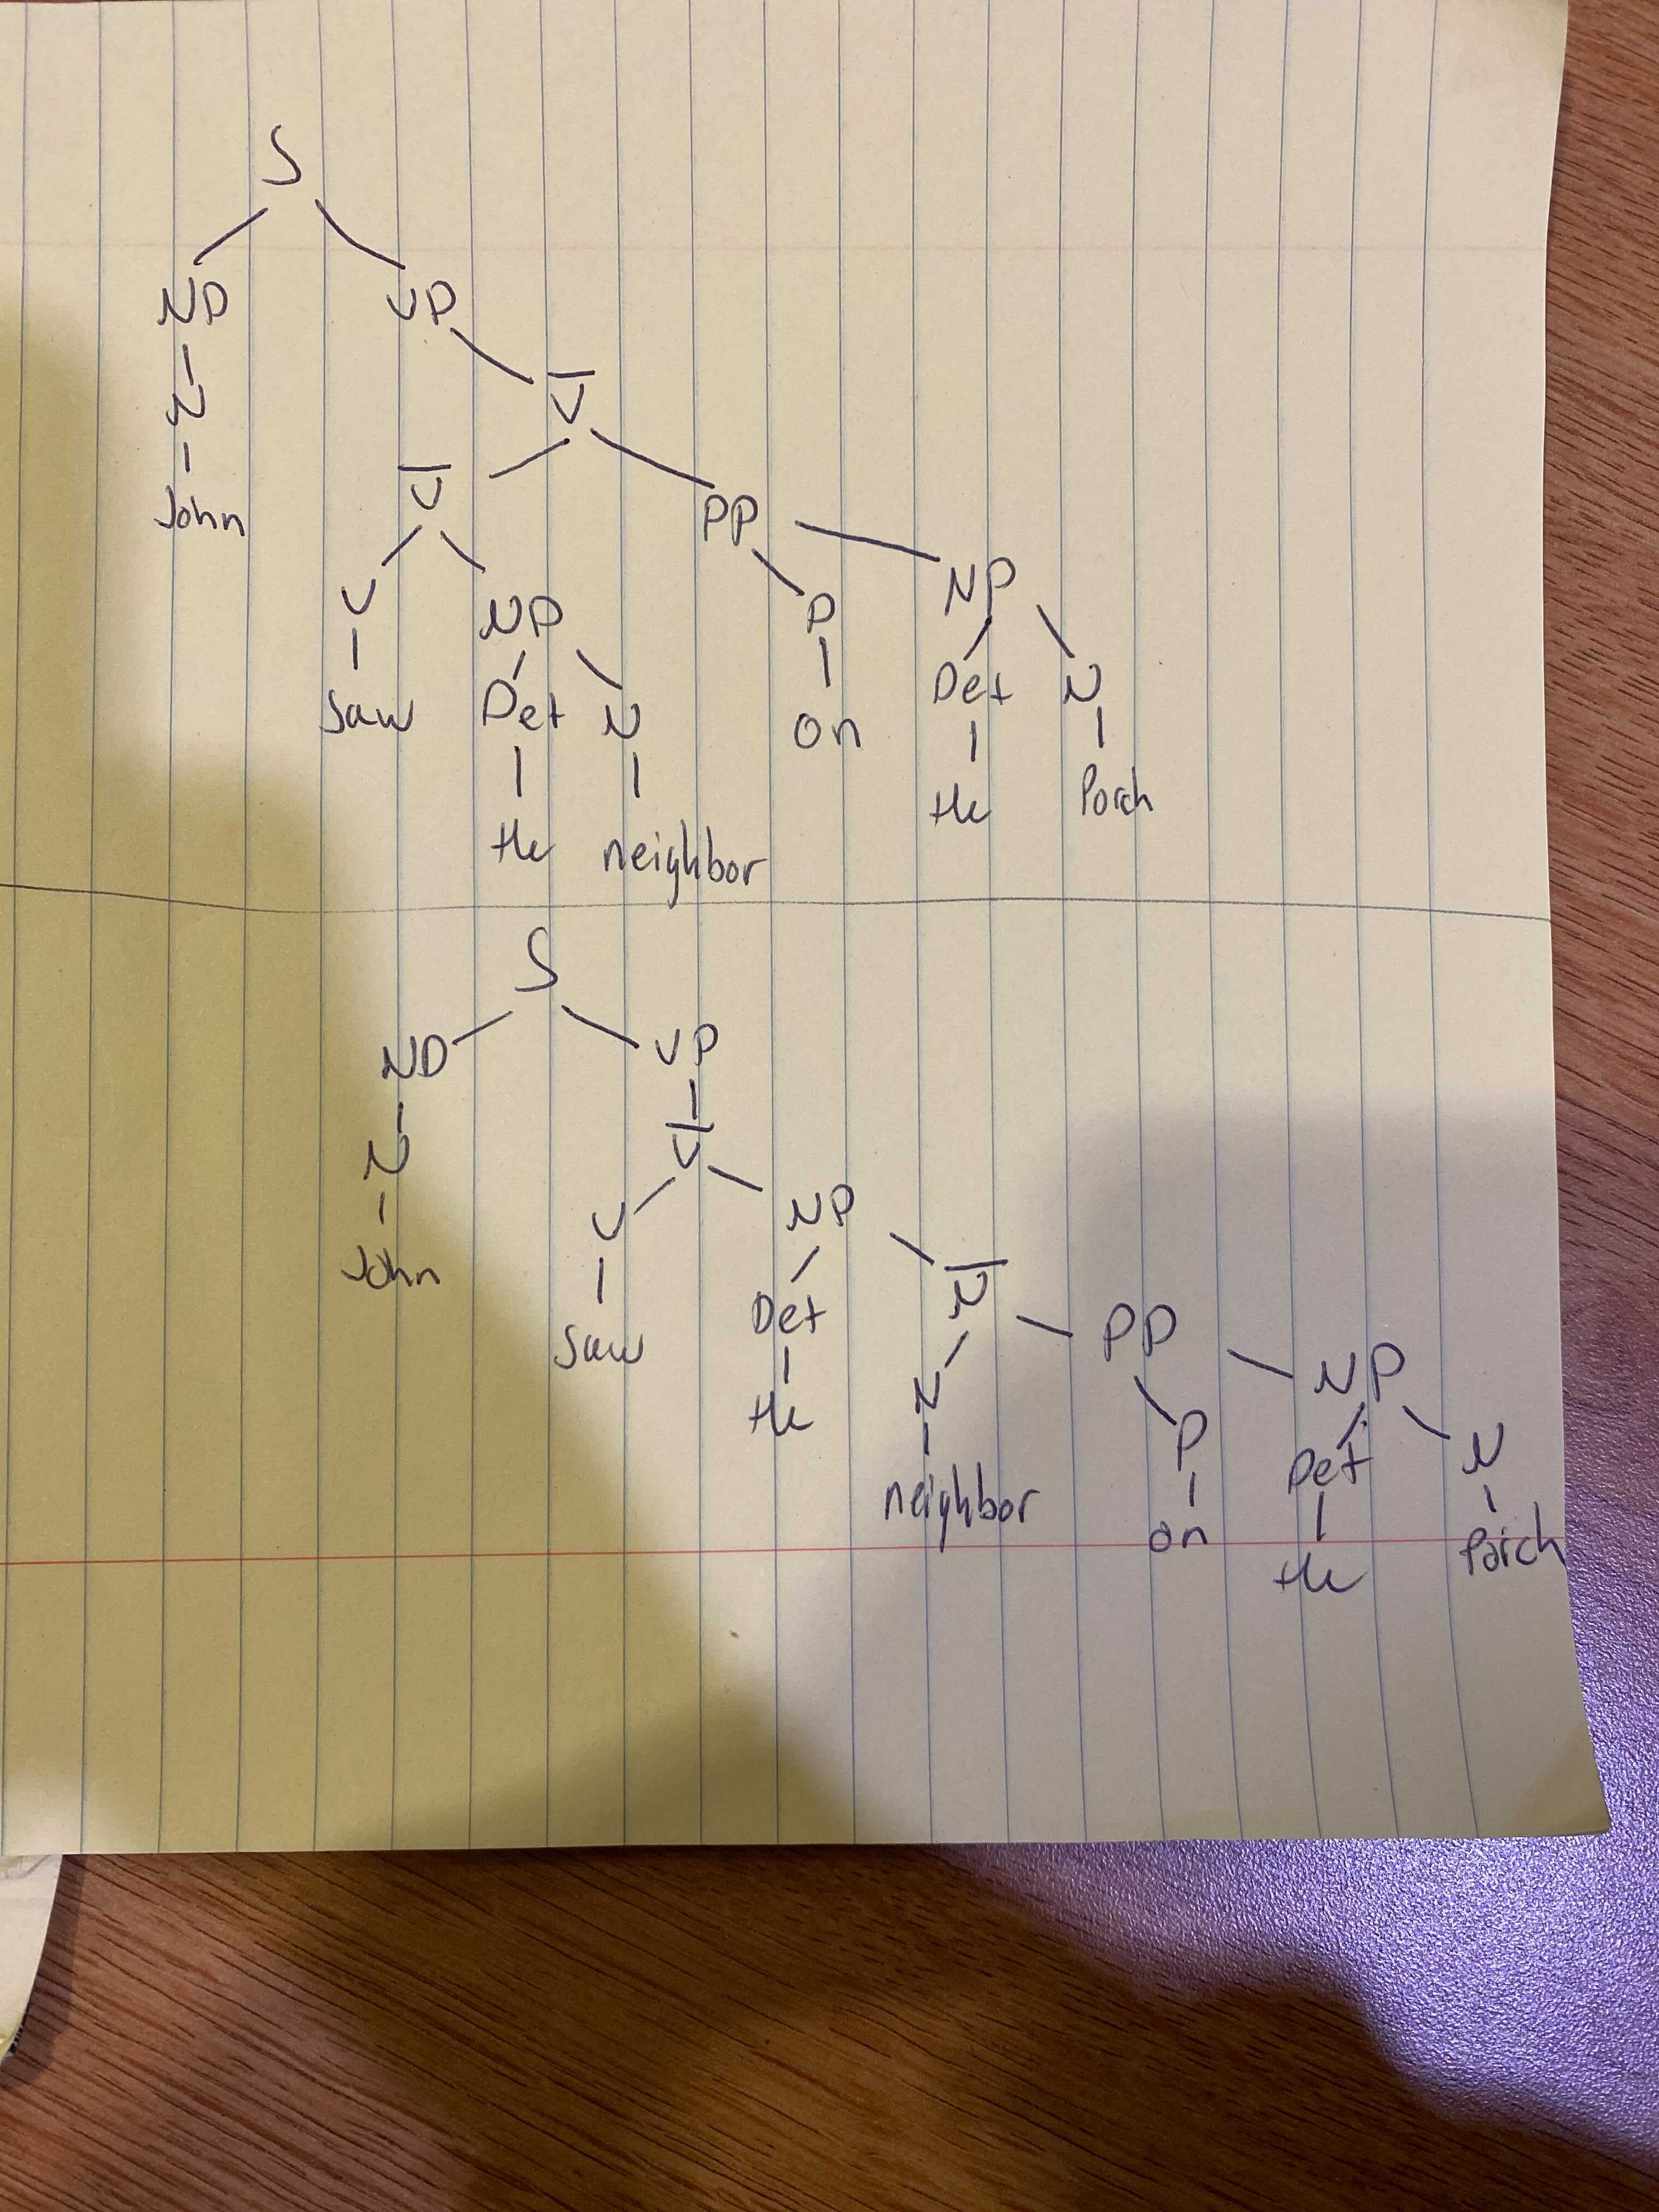 S
NP VP
N V̄
John V̄ PP
V NP P NP
Saw Det N On Det N
the neighbor the Porch
S
NP VP
N V̄
John V NP
Saw Det N̄ PP NP
the N P Det N
neighbor on the Porch